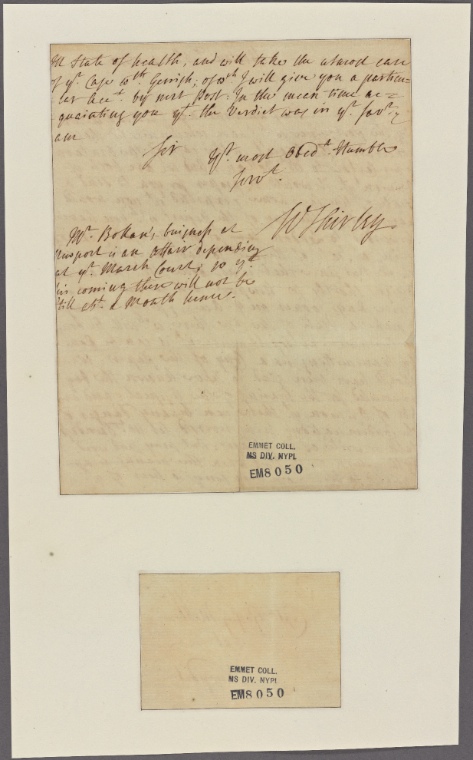 ill State of health, and will take the utmost care
of yr. Case wth. Gerrish; of wch. I will give you a particu-
lar Acct. by next Post. In the mean time ac-
quainting you yt. the Verdict was in yr. favr. I
am
Sir
Yr. most Obedt. Humble
Servt.
W Shirley
Mr. Bollan's business at
Newport is an Affair depending
at yr. March Court; so yt.
his coming there will not be
till abt. a Month hence.
EMMET COLL.
MS DIV. NYPL
EM8050
EMMET COLL.
MS DIV. NYPL
EM8050